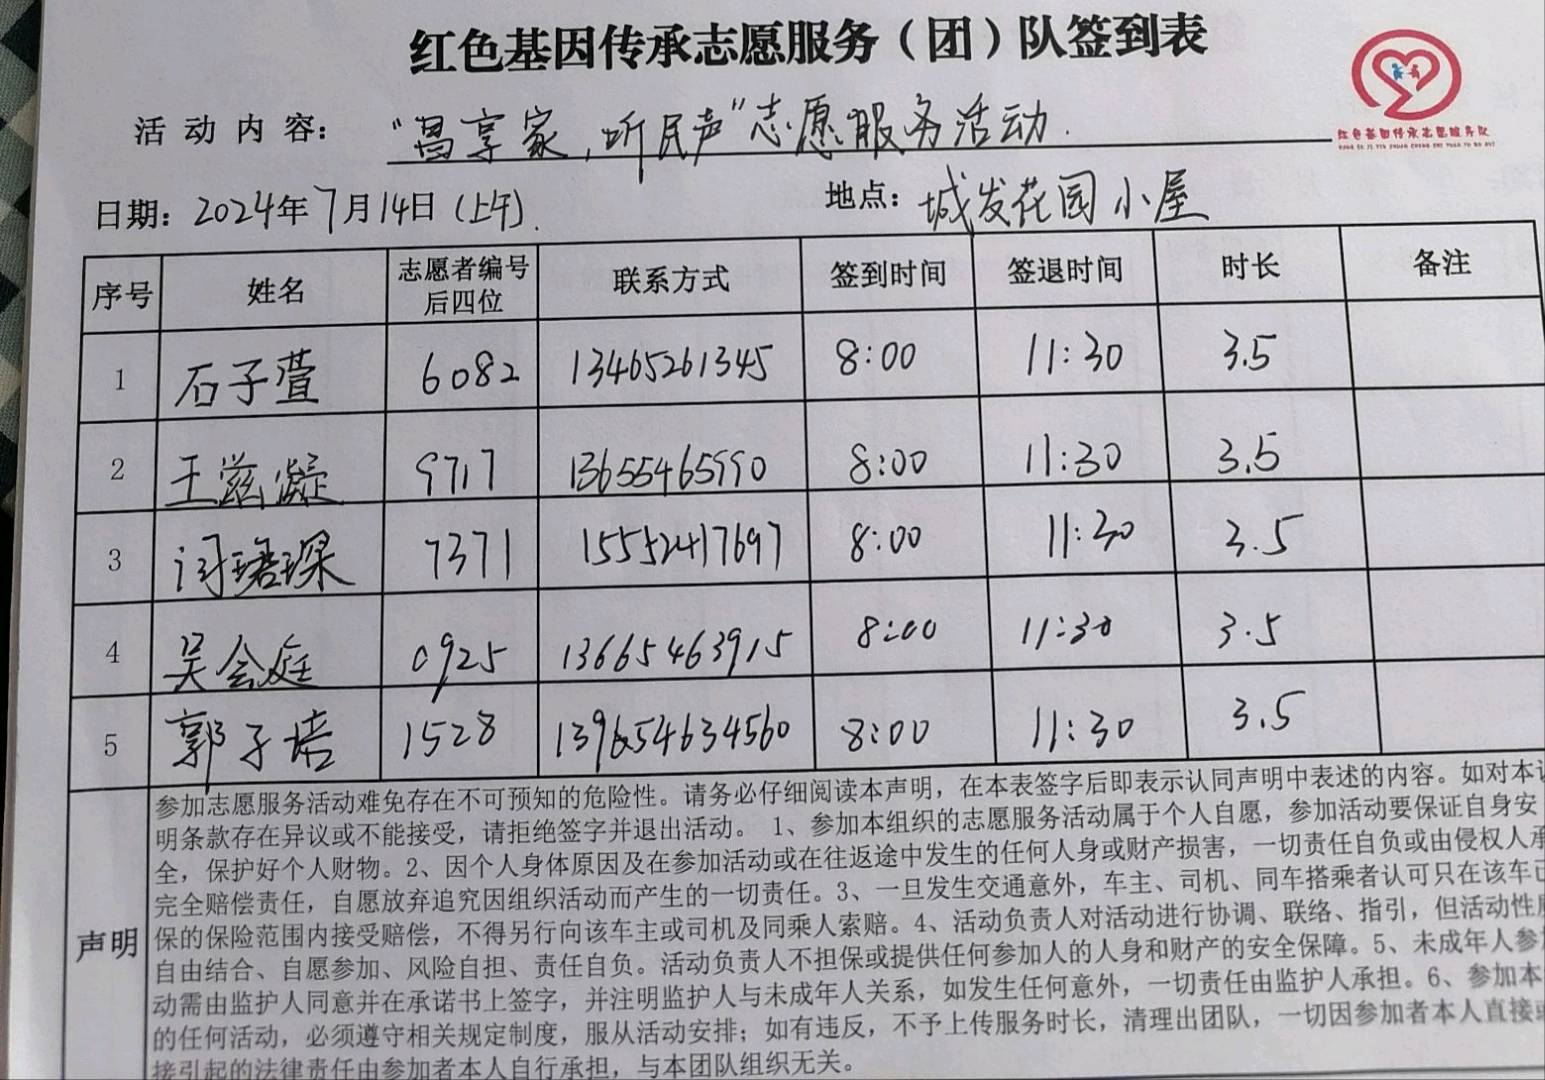 红色基因传承志愿服务（团）队签到表
活动内容： "昌享家，听民声"志愿服务活动.
红色基因传承志愿服务队
日期：2024年7月14日（上午）. 地点：城发花园小屋
序号 姓名 志愿者编号后四位 联系方式 签到时间 签退时间 时长 备注
1 石子萱 6082 13465261345 8:00 11:30 3.5
2 王滋凝 9717 13655465990 8:00 11:30 3.5
3 闫珺琛 7371 15552417697 8:00 11:30 3.5
4 吴会庭 0925 13665463915 8:00 11:30 3.5
5 郭子培 1528 8:00 11:30 3.5
声明
参加志愿服务活动难免存在不可预知的危险性。请务必仔细阅读本声明，在本表签字后即表示认同声明中表述的内容。如对本
明条款存在异议或不能接受，请拒绝签字并退出活动。 1、参加本组织的志愿服务活动属于个人自愿，参加活动要保证自身安
全，保护好个人财物。2、因个人身体原因及在参加活动或在往返途中发生的任何人身或财产损害，一切责任自负或由侵权人承
完全赔偿责任，自愿放弃追究因组织活动而产生的一切责任。3、一旦发生交通意外，车主、司机、同车搭乘者认可只在该车已
保的保险范围内接受赔偿，不得另行向该车主或司机及同乘人索赔。4、活动负责人对活动进行协调、联络、指引，但活动性质
自由结合、自愿参加、风险自担、责任自负。活动负责人不担保或提供任何参加人的人身和财产的安全保障。5、未成年人参加
动需由监护人同意并在承诺书上签字，并注明监护人与未成年人关系，如发生任何意外，一切责任由监护人承担。6、参加本
的任何活动，必须遵守相关规定制度，服从活动安排；如有违反，不予上传服务时长，清理出团队，一切因参加者本人直接或
接引起的法律责任由参加者本人自行承担，与本团队组织无关。